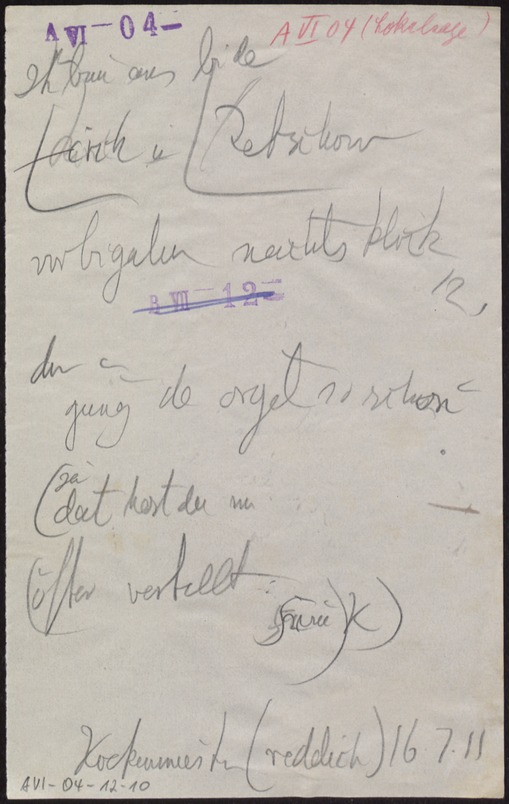 A VI - 04 -
A VI 04 (Lokalsage)
Ik bün ens bi de
Kirch in Retschow
vörbigahn nachts Klock
12,
B VI - 12 -
dor
gung de orgel so schön
(ja
dat hest du mi
öfter vertellt:
K)
Kockemeister (reddich) 16.7.11
AVI-04-12-10